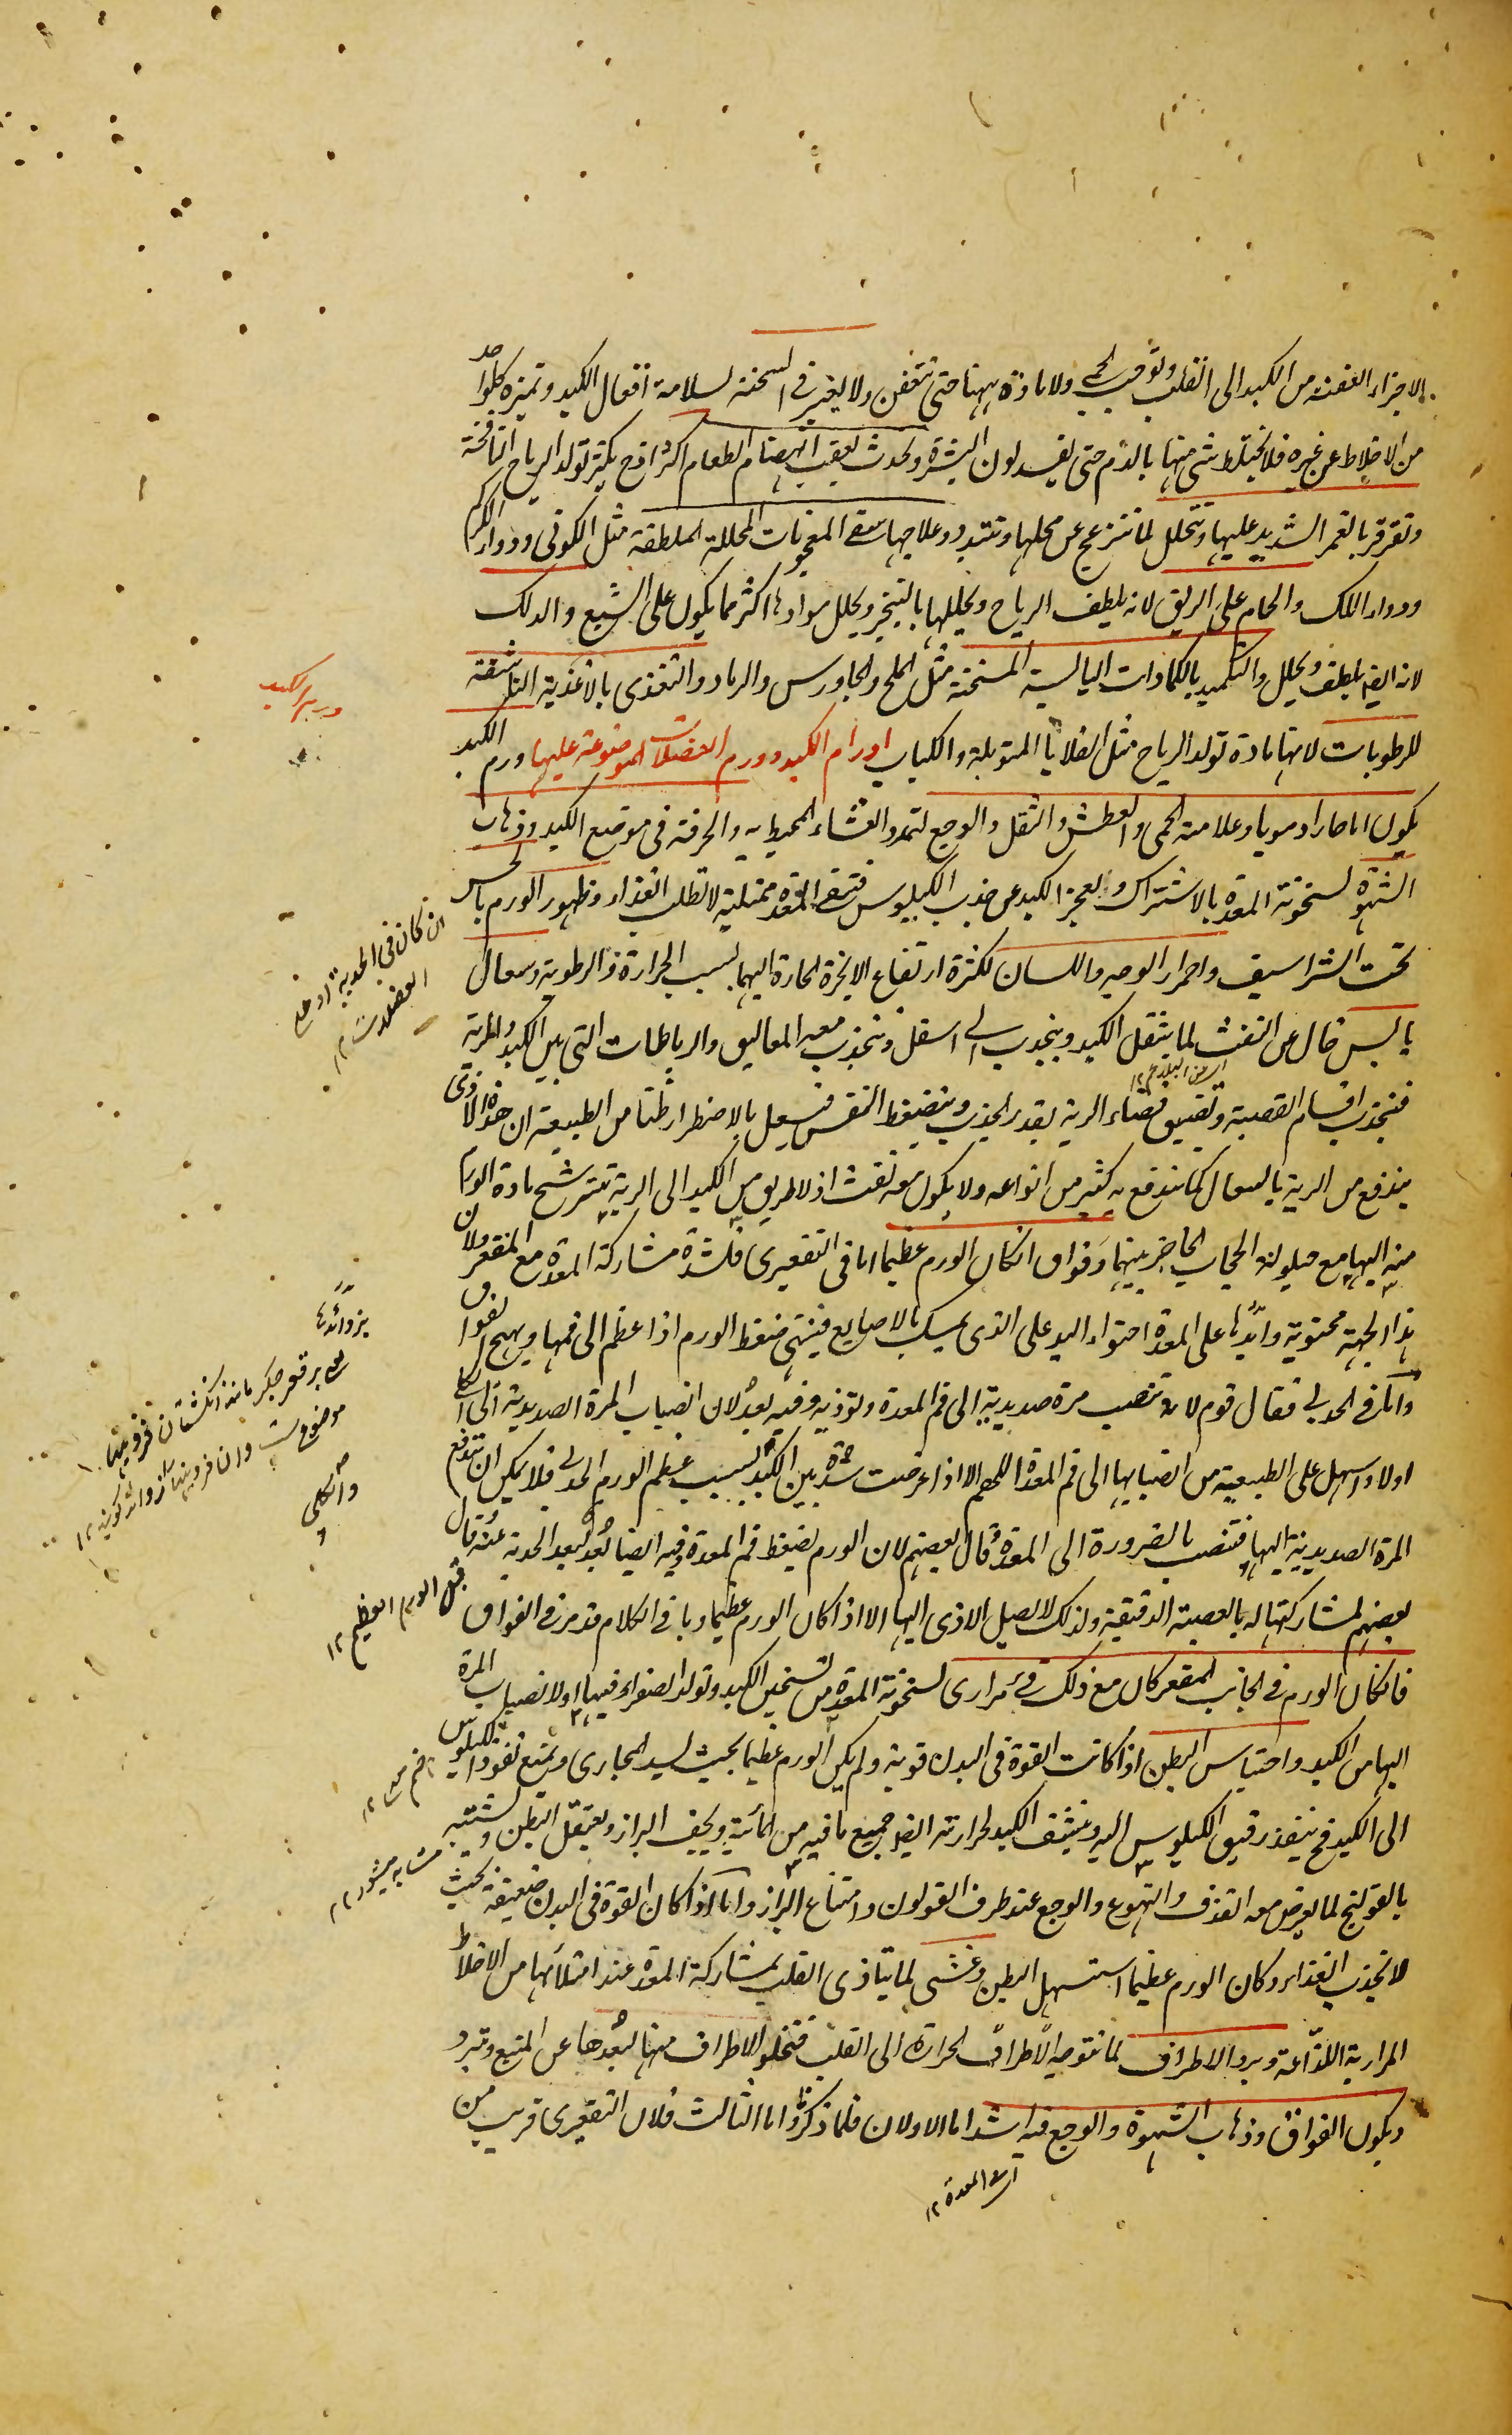 الاجزاء العفنة من الكبد الى القلب وتوجب الحمى ولا مادة ههنا حتى تتعفن ولا تغير فى السحنة لسلامة افعال الكبد وتميزه كلواحد
من الاخلاط عن غيره فلا يختلط شئ منها بالدم حتى يفسد لون البشرة وتحدث بعقب انهضام الطعام اكثر اذ ح يكثر تولد الرياح النافخة
وتقرقر بالغمز الشديد عليها وتتحلل لما تنزعج عن محلها وتتبدد وعلاجها سقى المعجونات المحللة الملطفة مثل الكمونى ودواء الكركم
ودواء اللك والحمام على الريق لانه يلطف الرياح ويحللها بالتبخير ويحلل موادها اكثر مما يكون على الشبع والدلك
لانه ايضا يلطف ويحلل والتكميد بالكمادات اليابسة المسخنة مثل الملح والجاورس والرماد والتغذى بالاغذية الناشفة
للرطوبات لانها مادة تولد الرياح مثل القلايا المتوبلة والكباب اورام الكبد وورم العضلات الموضوعة عليها ورم الكبد
يكون اما حارا دمويا وعلامته الحمى والعطش والثقل والوجع لتمدد الغشاء المحيط به والحرقة فى موضع الكبد وذهاب
الشهوة لسخونة المعدة بالاشتراك ولعجز الكبد عن جذب الكيلوس فتبقى المعدة ممتلية لا تطلب الغذاء وظهور الورم بالحس
تحت الشراسيف واحمرار الوجه واللسان لكثرة ارتفاع الابخرة الحارة اليهما بسبب الحرارة والرطوبة وسعال
يابس خال عن النفث لما يثقل الكبد وينجذب الى اسفل وينجذب معه المعاليق والرباطات التى بين الكبد والرية
فينجذب اقسام القصبة وتضيق فضاء الرية بقدر الجذب وينضغط النفس فيسعل بالاضطرار ظنا من الطبيعة ان هذا الاذى
يندفع من الرية بالسعال كما يندفع به كثير من انواعه ولا يكون معه نفث اذ لا طريق من الكبد الى الرية يترشح مادة الورم
منه اليها مع حيلولة الحجاب الحاجز بينهما وفواق ان كان الورم عظيما اما فى التقعيرى فلشدة مشاركة المعدة مع المقعر ولان
هذا الجهة محتوية وزايدها على المعدة احتواء اليد على الذى يمسك بالاصابع فينتهى ضغط الورم اذا عظم الى فمها ويهيج الفواق
واما فى الحدبى فقال قوم لانه تنصب مرة صديدية الى فم المعدة وتوذيه وفيه بعد لان انصباب المرة الصديدية الى الكلى
اولا واسهل على الطبيعة من انصبابها الى فم المعدة اللهم الا اذا عرضت شدة بين الكبد بسبب عظم الورم الحدبى فلا يمكن ان تندفع
المرة الصديدية اليها فتنصب بالضرورة الى المعدة وقال بعضهم لان الورم يضغط فم المعدة وفيه ايضا بعد لبعد الحدبة عنه وقال
بعضهم لمشاركتها له بالعصبة الدقيقة ولذلك لا يصل الاذى اليها الا اذا كان الورم عظيما وباقى الكلام قد مر فى الفواق
فان كان الورم فى الجانب المقعر كان مع ذلك قئ مرارى لسخونة المعدة من تسخين الكبد وتولد الصفراء فيها او لانصباب المرة
اليها من الكبد واحتباس البطن اذا كانت القوة فى البدن قوية ولم يكن الورم عظيما بحيث يسد المجارى ويمنع نفوذ الكيلوس
الى الكبد فح ينفذ رقيق الكيلوس اليه وينشف الكبد لحرارته ايضا جميع ما فيه من المائية ويجف البراز ويعتقل البطن ويشتبه
بالقولنج لما يعرض معه القذف والتهوع والوجع عند طرف القولون وامتناع البراز واما اذا كان القوة فى البدن ضعيفة بحيث
لا تجذب الغذاء وكان الورم عظيما استسهل البطن وغشى لما يتاذى القلب بمشاركة المعدة عند امتلائها من الاخلاط
المرارية اللذاعة وبرد الاطراف لما تتوجه الاطراف الحرارة الى القلب فتخلو الاطراف منها لبعدها عن المنبع وتبرد
ويكون الفواق وذهاب الشهوة والوجع فيه اشد اما الاولان فلما ذكر واما الثالث فلان التقعيرى قريب من
ورم الكبد
ان كان فى الحدبة او فى العضلات ١٢
اى من البلغم ١٢
بزوائدها
يعنى بر قعر جكر مانند انكشتان فرو هشته
موضوع ست وان فروهشته را زوائد كويند ١٢
وانكلى
قبل الورم العظيم ١٢
فم معده ١٢
مشابه ميشود ١٢
اى المعدة ١٢